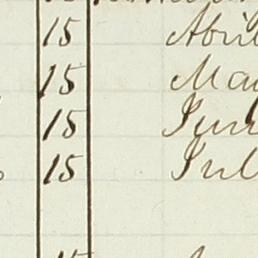 15 Abril
15 Ma
15 Jun
15 Jul
15